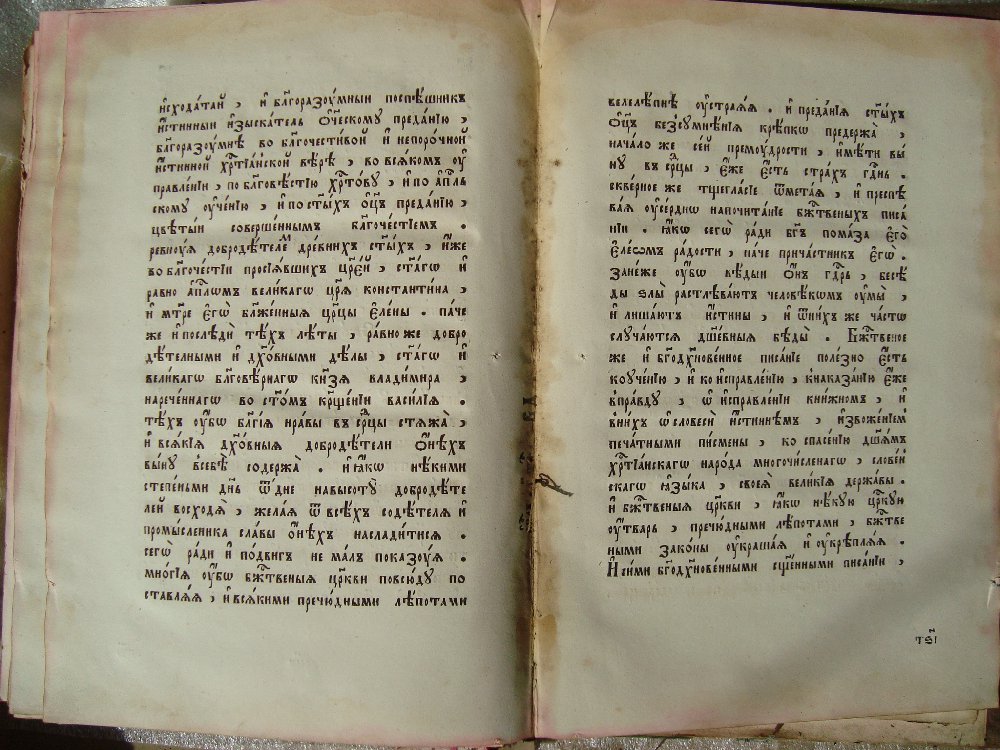 и҆схода́тай , и҆ бл҃горазꙋ́мныи поспѣ́шникъ
и҆́стинныи и҆зыска́тель ѻ҆ч҃ескому преда́нїю ,
бл҃горазꙋ́мнѣ во бл҃гочести́вой и҆ непоро́чной
и҆́стинной хрⷭ҇тїа́нской вѣ́рѣ , во всѧ́комъ ᲂу҆
правле́нїи , по бл҃говѣ́стїю хрⷭ҇то́ву , и҆ по а҆пⷭ҇ль
скому ᲂу҆че́нїю , и҆ по ст҃ы́хъ ѻ҆ц҃ъ преда́нїю ,
цвѣты́й соверше́ннымъ бл҃гоче́стїемъ .
ревнꙋ́ѧ добродѣ́телеⷨ дре́внихъ ст҃ы́хъ , и҆́же
во бл҃гоче́стїи просїѧ́вшихъ цр҃е́й , ст҃а́гѡ и҆
равно а҆пⷭ҇лѡмъ вели́кагѡ цр҃ѧ̀ константи́на ,
и҆ мт҃ре є҆гѡ̀ бл҃же́нныѧ цр҃цы є҆ле́ны . па́че
же и҆ послѣди́ тѣ́хъ лѣ́ты , ра́вно же добро
дѣ́телными и҆ дх҃о́вными дѣ́лы , ст҃а́гѡ и҆
вели́кагѡ бл҃говѣ́рнагѡ кн҃зѧ влади́мира ,
нарече́ннагѡ во ст҃о́мъ крⷳ҇ще́нїи васи́лїѧ .
тѣ́хъ ᲂу҆́бѡ бл҃гі́ѧ нра́вы въ срⷣцы стѧжа̀ ,
и҆ всѧ́кїѧ дх҃о́вныѧ добродѣ́тели ѻ҆нѣ́хъ
вы́ну всебѣ̀ содержа̀ . и҆ ꙗ҆́кѡ нѣ́кими
степе́ньми дн҃ь ѿ дне навысотꙋ̀ добродѣ́те
лей восходѧ̀ , жела́ѧ ѿ всѣ́хъ содѣ́телѧ и҆
промы́сленика сла́вы ѻ҆нѣ́хъ наслади́тисѧ .
сегѡ̀ ра́ди и҆ по́двигъ не ма́лъ показꙋ́ѧ .
мнѡ́гїѧ ᲂу҆́бѡ бжⷭ҇твеныѧ цр҃кви повсю́дꙋ по
ставлѧ́ѧ , и҆ всѧ́кими пречю́дными лѣ́потами
велелѣ́пнѣ ᲂу҆стра́ѧѧ . и҆ преда́нїѧ ст҃ы́хъ
ѻ҆ц҃ъ безсꙋмнѣ́нїѧ крѣ́пкѡ предержа̀ ,
нача́ло же се́й премꙋ́дрости , и҆мѣ́ти вы́
нꙋ въ срⷣцы , є҆́же є҆́сть стра́хъ гдⷭ҇нь .
скве́рное же тщегла́сїе ѿмета́ѧ , и҆ преспѣ
ва́ѧ ᲂу҆се́рднѡ напочита́нїе бжⷭ҇твеныхъ писа́
нїи . ꙗ҆́кѡ сегѡ̀ ра́ди бг҃ъ пома́за є҆го̀
є҆ле́ѡмъ ра́дости , па́че прича́стникъ є҆гѡ̀ .
зане́же ᲂу҆́бѡ вѣ́дыи ѻ҆́нъ гдⷭ҇рь , бесѣ́
ды ѕлы̀ растлѣва́ютъ человѣ́кѡмъ ᲂу҆мы̀ ,
и҆ лиша́ютъ и҆́стины , и҆ ѿни́хъ же ча́стѡ
слꙋча́ютсѧ дш҃е́вныѧ бѣды̀ . Бжⷭ҇твеное
же и҆ бг҃одхнове́нное писа́нїе поле́зно є҆́сть
коуче́нїю , и҆ ко и҆справле́нїю , кнаказа́нїю є҆́же
впра́вдꙋ , ѡ҆ и҆справле́нїи кни́жномъ , и҆
вни́хъ ѡ҆словесѝ и҆́стиннѣмъ , и҆звоже́нїеⷨ
печа́тными пи́смены , ко спасе́нїю дш҃а́мъ
хрⷭ҇тїа́нскагѡ наро́да многочи́сленагѡ , слове́н
скагѡ ꙗ҆зы́ка , своеѧ̀ вели́кїѧ держа́вы .
и҆ бжⷭ҇твеныѧ цр҃кви , ꙗ҆́кѡ нѣ́кꙋю црⷭ҇кую
ᲂу҆́тварь , пречю́дными лѣ́потами , бжⷭ҇тве
ными зако́ны ᲂу҆краша́ѧ и҆ ᲂу҆крѣплѧ́ѧ .
И҆ си́ми бг҃одхнове́нными сщ҃е́нными писа́нїи ,
тѕ҃і